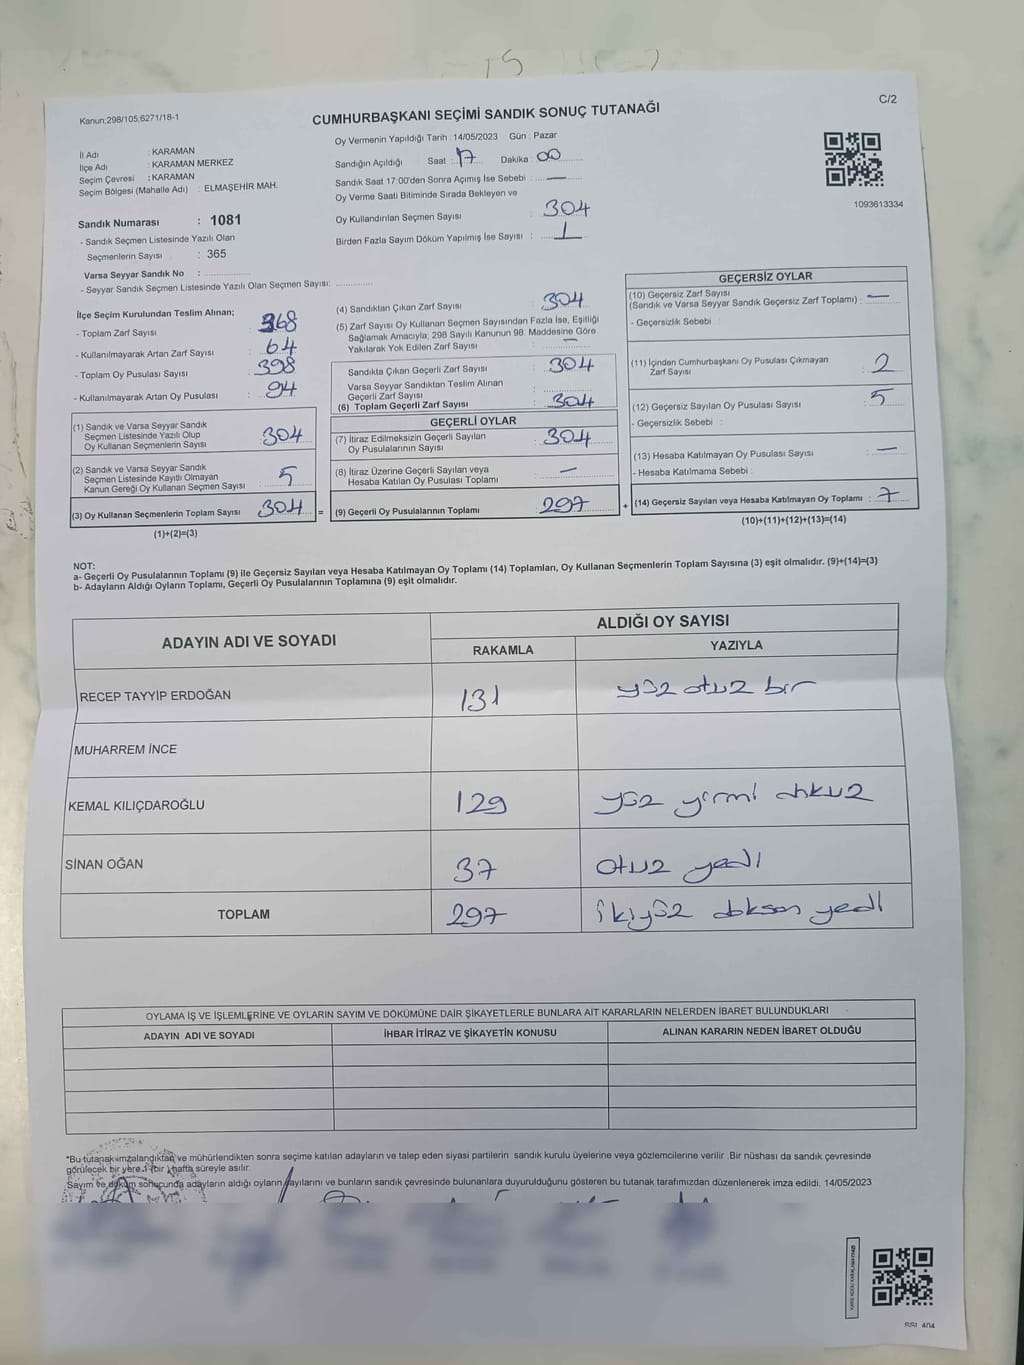 Kanun;298/105,6271/18-1
CUMHURBAŞKANI SEÇİMİ SANDIK SONUÇ TUTANAĞI
C/2
İl Adı : KARAMAN
İlçe Adı : KARAMAN MERKEZ
Seçim Çevresi : KARAMAN
Seçim Bölgesi (Mahalle Adı) : ELMAŞEHİR MAH.
Sandık Numarası : 1081
- Sandık Seçmen Listesinde Yazılı Olan
Seçmenlerin Sayısı : 365
Varsa Seyyar Sandık No :
- Seyyar Sandık Seçmen Listesinde Yazılı Olan Seçmen Sayısı:
Oy Vermenin Yapıldığı Tarih : 14/05/2023 Gün : Pazar
Sandığın Açıldığı Saat : 17 Dakika : 00
Sandık Saat 17:00'den Sonra Açımış İse Sebebi : —
Oy Verme Saati Bitiminde Sırada Bekleyen ve
Oy Kullandırılan Seçmen Sayısı : 304
Birden Fazla Sayım Döküm Yapılmış İse Sayısı : 1
1093613334
İlçe Seçim Kurulundan Teslim Alınan;
- Toplam Zarf Sayısı : 368
- Kullanılmayarak Artan Zarf Sayısı : 64
- Toplam Oy Pusulası Sayısı : 398
- Kullanılmayarak Artan Oy Pusulası : 94
(1) Sandık ve Varsa Seyyar Sandık
Seçmen Listesinde Yazılı Olup
Oy Kullanan Seçmenlerin Sayısı : 304
(2) Sandık ve Varsa Seyyar Sandık
Seçmen Listesinde Kayıtlı Olmayan
Kanun Gereği Oy Kullanan Seçmen Sayısı : 5
(3) Oy Kullanan Seçmenlerin Toplam Sayısı : 304 =
(1)+(2)=(3)
(4) Sandıktan Çıkan Zarf Sayısı : 304
(5) Zarf Sayısı Oy Kullanan Seçmen Sayısından Fazla İse, Eşitliği
Sağlamak Amacıyla; 298 Sayılı Kanunun 98. Maddesine Göre
Yakılarak Yok Edilen Zarf Sayısı : —
Sandıkla Çıkan Geçerli Zarf Sayısı : 304
Varsa Seyyar Sandıktan Teslim Alınan
Geçerli Zarf Sayısı :
(6) Toplam Geçerli Zarf Sayısı : 304
GEÇERLİ OYLAR
(7) İtiraz Edilmeksizin Geçerli Sayılan
Oy Pusulalarının Sayısı : 304
(8) İtiraz Üzerine Geçerli Sayılan veya
Hesaba Katılan Oy Pusulası Toplamı : —
(9) Geçerli Oy Pusulalarının Toplamı : 297 +
GEÇERSİZ OYLAR
(10) Geçersiz Zarf Sayısı
(Sandık ve Varsa Seyyar Sandık Geçersiz Zarf Toplamı) : —
- Geçersizlik Sebebi :
(11) İçinden Cumhurbaşkanı Oy Pusulası Çıkmayan
Zarf Sayısı : 2
(12) Geçersiz Sayılan Oy Pusulası Sayısı : 5
- Geçersizlik Sebebi :
(13) Hesaba Katılmayan Oy Pusulası Sayısı : —
- Hesaba Katılmama Sebebi :
(14) Geçersiz Sayılan veya Hesaba Katılmayan Oy Toplamı : 7
(10)+(11)+(12)+(13)=(14)
NOT:
a- Geçerli Oy Pusulalarının Toplamı (9) ile Geçersiz Sayılan veya Hesaba Katılmayan Oy Toplamı (14) Toplamları, Oy Kullanan Seçmenlerin Toplam Sayısına (3) eşit olmalıdır. (9)+(14)=(3)
b- Adayların Aldığı Oyların Toplamı, Geçerli Oy Pusulalarının Toplamına (9) eşit olmalıdır.
ADAYIN ADI VE SOYADI
ALDIĞI OY SAYISI
RAKAMLA YAZIYLA
RECEP TAYYİP ERDOĞAN 131 yüz otuz bir
MUHARREM İNCE
KEMAL KILIÇDAROĞLU 129 yüz yirmi dokuz
SİNAN OĞAN 37 otuz yedi
TOPLAM 297 ikiyüz doksan yedi
OYLAMA İŞ VE İŞLEMLERİNE VE OYLARIN SAYIM VE DÖKÜMÜNE DAİR ŞİKAYETLERLE BUNLARA AİT KARARLARIN NELERDEN İBARET BULUNDUKLARI
ADAYIN ADI VE SOYADI İHBAR İTİRAZ VE ŞİKAYETİN KONUSU ALINAN KARARIN NEDEN İBARET OLDUĞU
*Bu tutanak imzalandıktan ve mühürlendikten sonra seçime katılan adayların ve talep eden siyasi partilerin sandık kurulu üyelerine veya gözlemcilerine verilir .Bir nüshası da sandık çevresinde
görülecek bir yere 1 (bir ) hafta süreyle asılır.
Sayım ve döküm sonucunda adayların aldığı oyların sayılarını ve bunların sandık çevresinde bulunanlara duyurulduğunu gösteren bu tutanak tarafımızdan düzenlenerek imza edildi. 14/05/2023